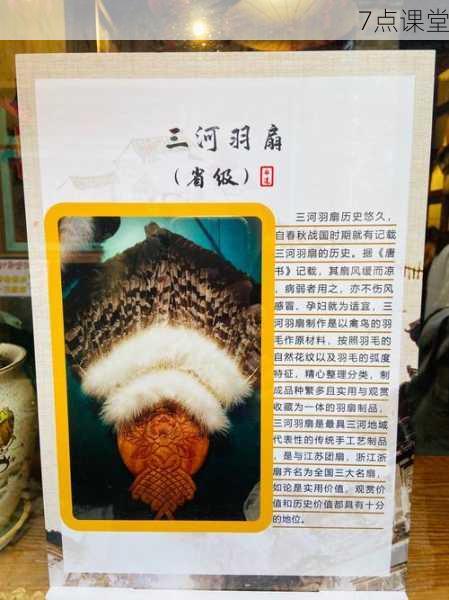 7点课堂
三河羽扇
（省级）
三河羽扇历史悠久，
自春秋战国时期就有记载
三河羽扇的历史。据《唐
书》记载，其扇风缓而凉
，病弱者用之，亦不伤风
感冒、孕妇就为适宜，三
河羽扇制作是以禽鸟的羽
毛作原材料，按照羽毛的
自然花纹以及羽毛的弧度
特征，精心整理分类，制
成品种繁多且实用与观赏
收藏为一体的羽扇制品，
三河羽扇是最具三河地域
代表性的传统手工艺制品
，是与江苏团扇，浙江浙
扇齐名为全国三大名扇，
如论是实用价值，观赏价
值和历史价值都具有十分
的地位。